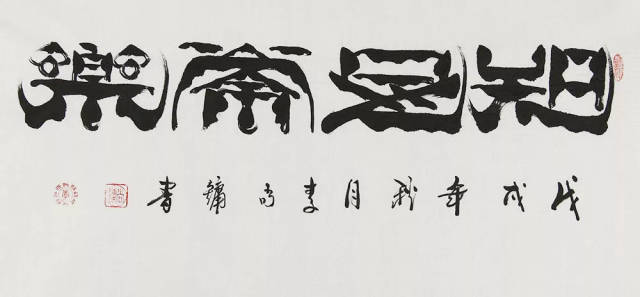 知足常樂
戊戌年秋月李尚鏞書